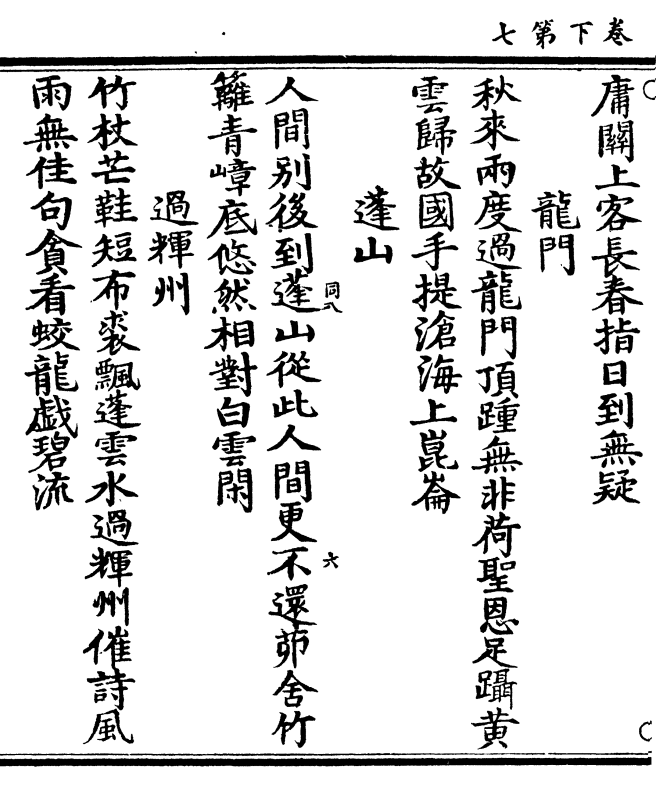 卷下第七
庸關上客長春指日到無疑
龍門
秋來兩度過龍門頂踵無非荷聖恩足躡黃
雲歸故國手提滄海上崑崙
蓬山
人間別後到蓬山從此人間更不還茆舍竹
同八
六
籬青嶂底悠然相對白雲閑
過輝州
竹杖芒鞋短布裘飄蓬雲水過輝州催詩風
雨無佳句貪看蛟龍戯碧流